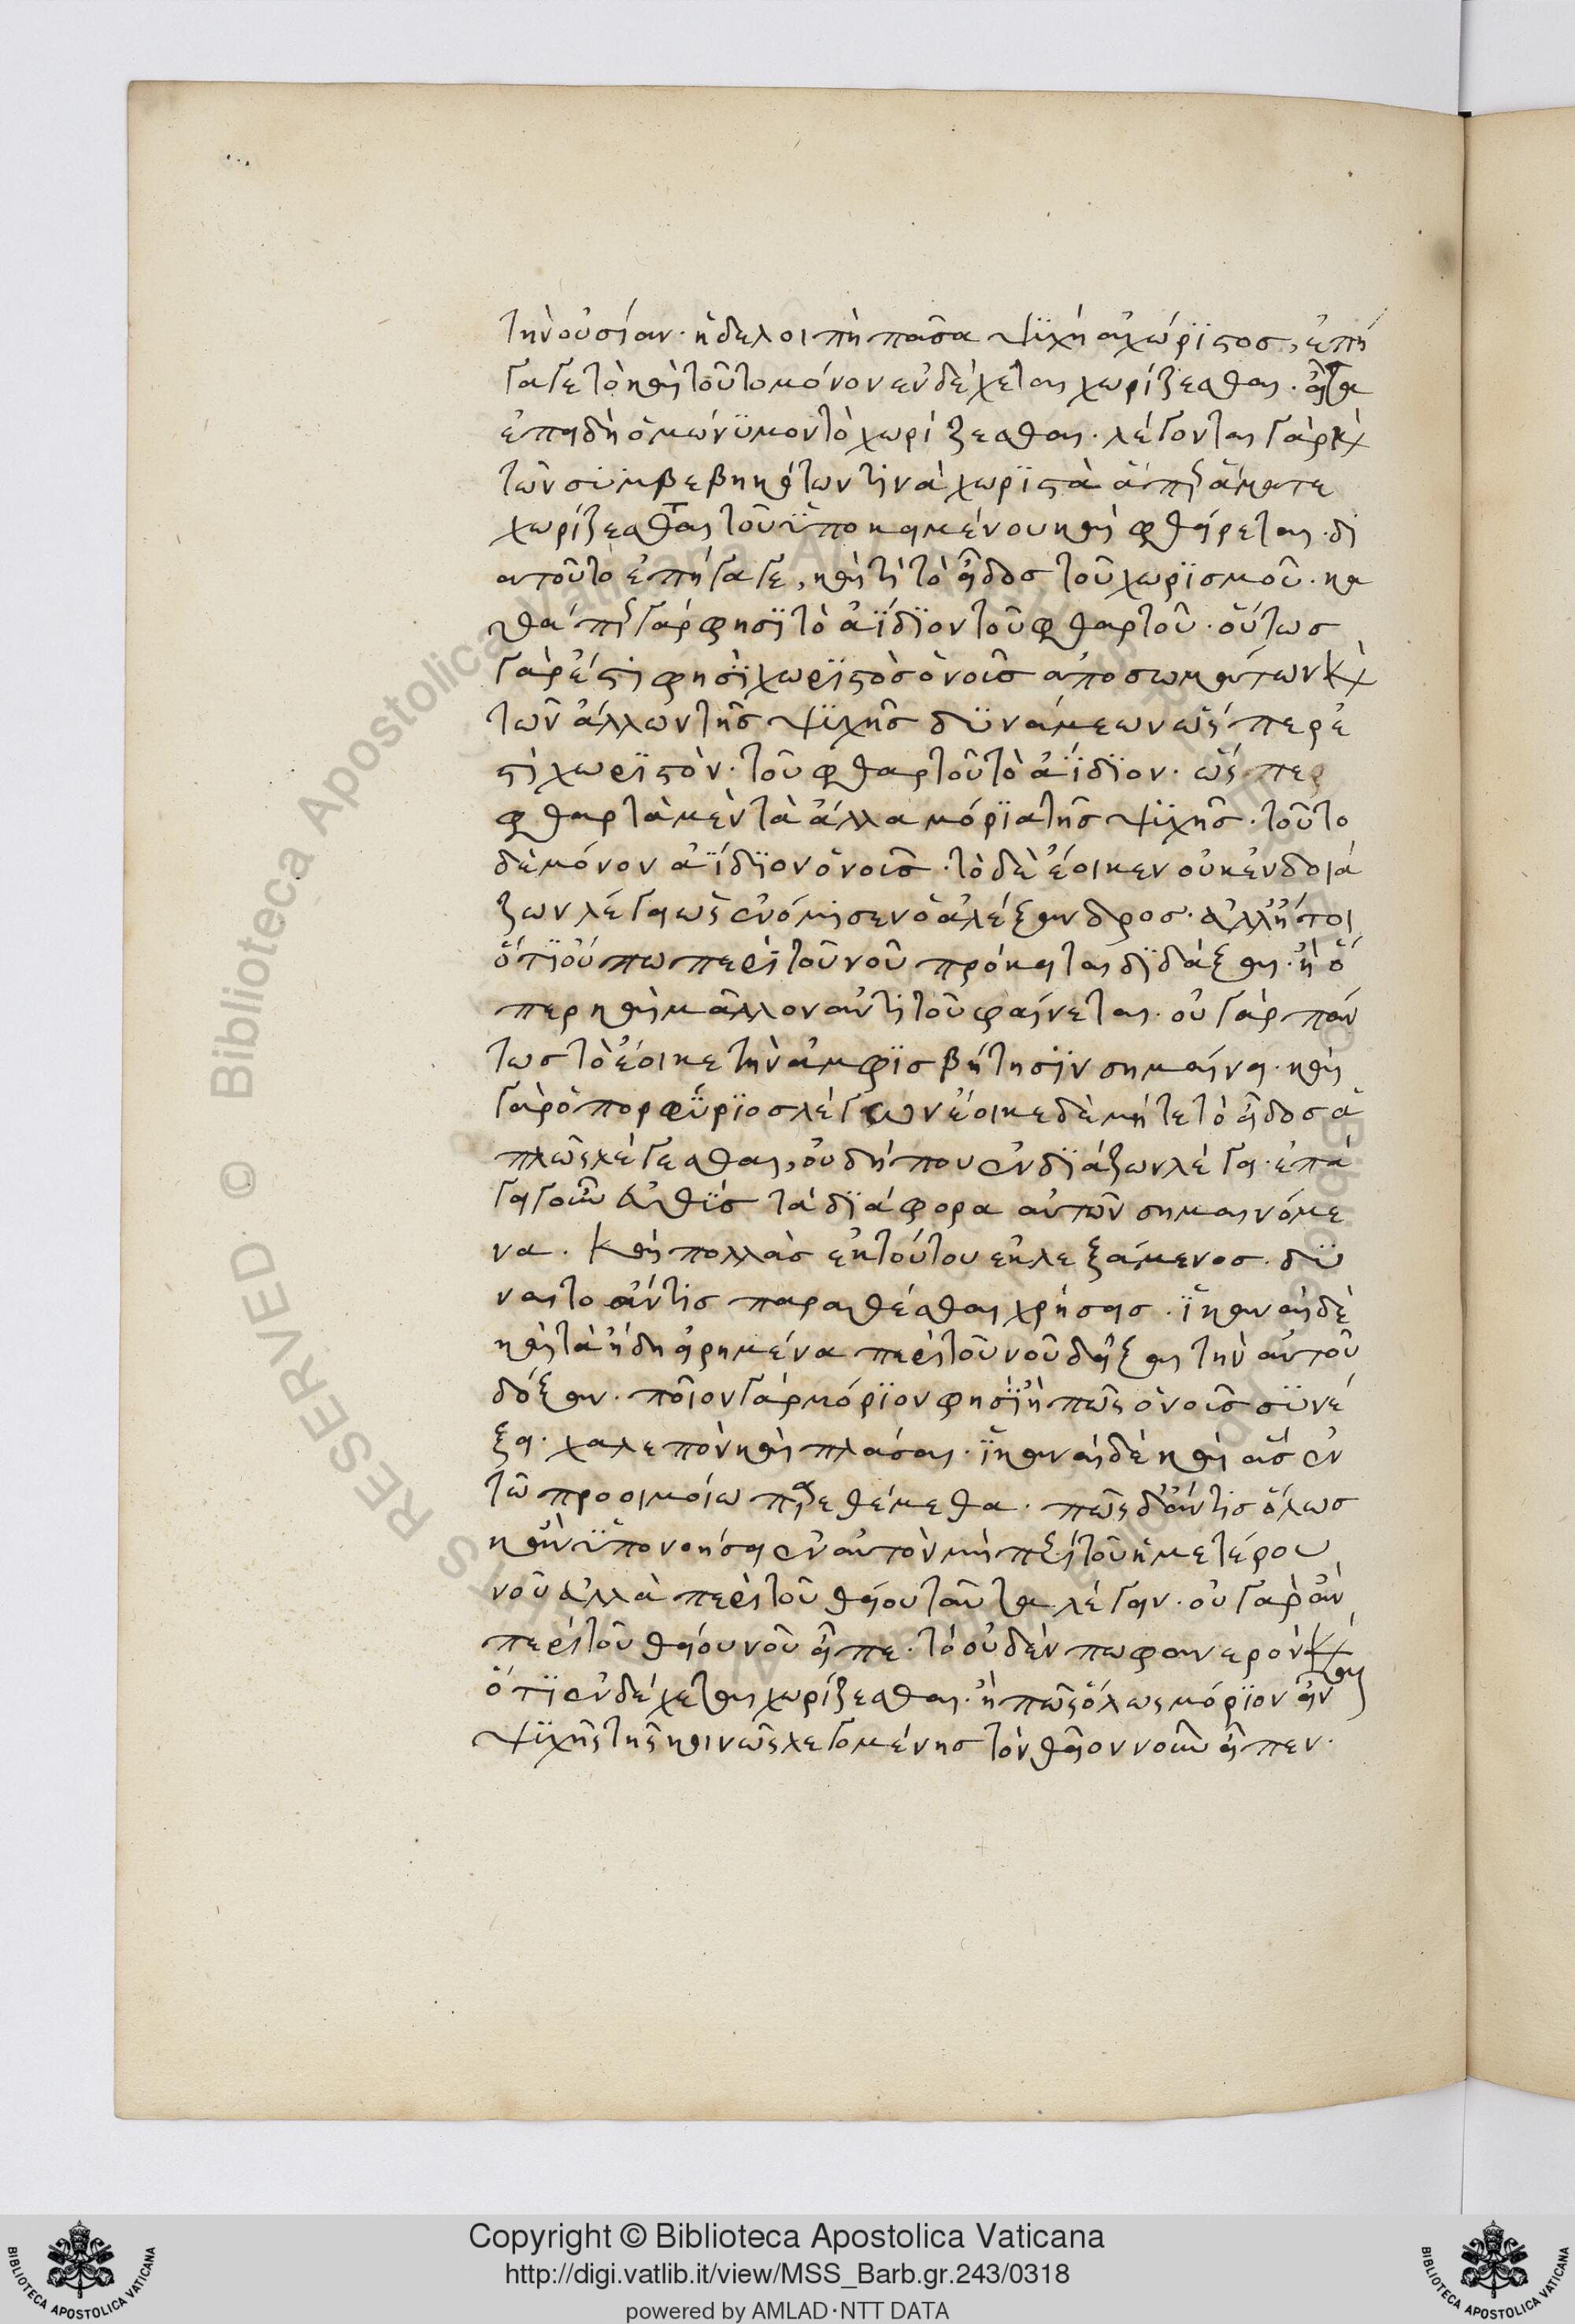 τὴν οὐσίαν· ἡ δὲ λοιπὴ πᾶσα ψϋχὴ ἀχώρϊστος, ἐπή
γαγε τὸ καὶ τοῦτο μόνον ἐνδέχεται χωρίζεσθαι· εἶτα
ἐπειδὴ ὁμώνϋμον τὸ χωρίζεσθαι· λέγονται γὰρ καὶ
τῶν σϋμβεβηκότων τινὰ χωρϊστὰ ἅπερ ἅμα τε
χωρίζεσθαι τοῦ ϋποκειμένου καὶ φθείρεται· δι
α τοῦτο ἐπήγαγε, καὶ τί τὸ εἶδος τοῦ χωρϊσμοῦ· κα
θάπερ γάρ φησϊ τὸ ἀΐδϊον τοῦ φθαρτοῦ· οὕτως
γάρ ἐστί φησϊ χωρϊστὸς ὁ νοῦς ἀπο σωμάτων καὶ
τῶν ἄλλων τῆς ψϋχῆς δϋνάμεων ὥσπερ ἐ
στὶ χωρϊστὸν· τοῦ φθαρτοῦ τὸ ἀΐδϊον· ὥσπερ
φθαρτὰ μὲν τὰ ἄλλα μόρϊα τῆς ψϋχῆς· τοῦτο
δὲ μόνον ἀΐδϊον ὁ νοῦς· τὸ δὲ ἔοικεν οὐκ ἐνδοιά
ζων λέγει ὡς ἐνόμισεν ὁ ἀλέξανδρος· ἀλλ' ἤτοι
ὅτϊ οὔπω περὶ τοῦ νοῦ πρόκειται δϊδάξαι· ἢ ὅ
περ καὶ μᾶλλον ἀντὶ τοῦ φαίνεται· οὐ γὰρ πάν
τως τὸ ἔοικε τὴν ἀμφϊσβήτησϊν σημαίνει· καὶ
γὰρ ὁ πορφϋρϊος λέγων ἔοικε δὲ μήτε τὸ εἶδος ἁ
πλῶς λέγεσθαι, οὐ δήπου ἐνδϊάζων λέγει· ἐπά
γει γοῦν εὐθϋς τὰ δϊάφορα αὐτῶν σημαινόμε
να· καὶ πολλὰς ἐκ τούτου ἐκλεξάμενος· δϋ
ναιτο ἄν τις παραθέσθαι χρήσεις· ϊκαναὶ δὲ
καὶ τὰ ἤδη εἰρημένα περὶ τοῦ νοῦ δεῖξαι τὴν αὐτοῦ
δόξαν· ποῖον γὰρ μόρϊον φησϊ ἢ πῶς ὁ νοῦς σϋνέ
ξει· χαλεπὸν καὶ πλάσαι· ϊκαναὶ δὲ καὶ ἃς ἐν
τῶ προοιμοίω παρεθέμεθα· πῶς δ' ἄν τις ὅλως
κἂν ϋπονοήσειεν αὐτὸν μὴ περὶ τοῦ ἡμετέρου
νοῦ ἀλλὰ περὶ τοῦ θείου ταῦτα λέγειν· οὐ γὰρ ἂν
περὶ τοῦ θείου νοῦ εἶπε· τὸ οὐδέν πω φανερὸν καὶ
ὅτϊ ἐνδέχεται χωρίζεσθαι· ἢ πῶς ὅλως μόρϊον εἶναι
ψϋχῆς τῆς κοινῶς λεγομένης τὸν θεῖον νοῦν εἶπεν·
Copyright © Biblioteca Apostolica Vaticana
http://digi.vatlib.it/view/MSS_Barb.gr.243/0318
powered by AMLAD·NTT DATA